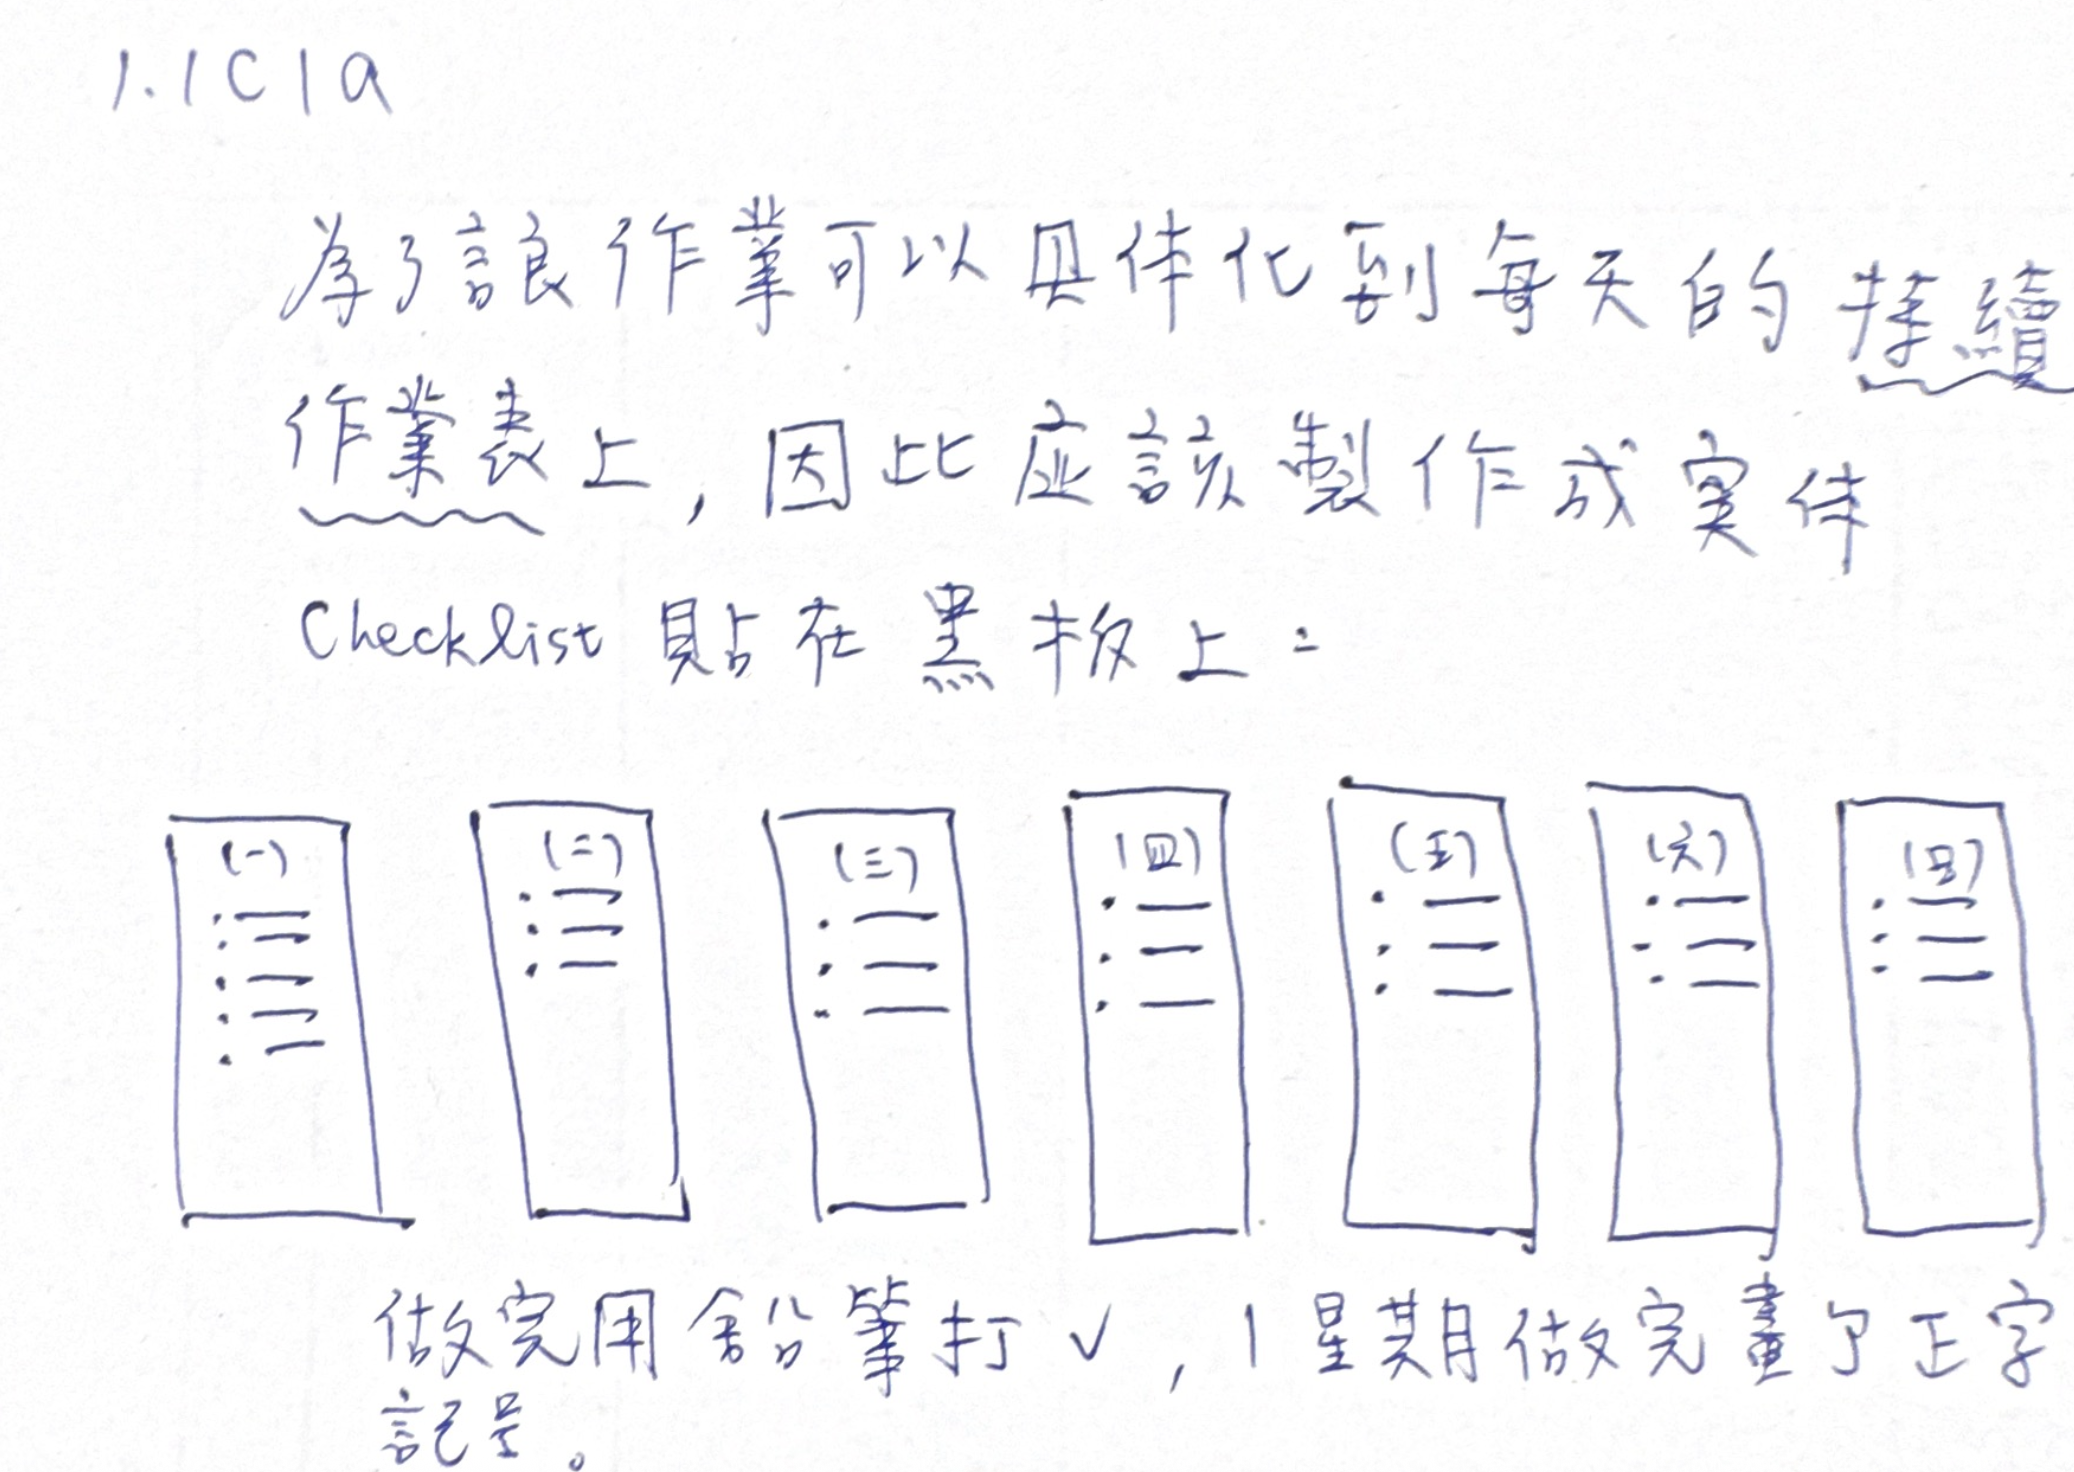 1.1C1a
為了讓作業可以具体化到每天的持續
作業表上，因此应該製作成实体
Checklist 貼在黑板上：
(一) (二) (三) (四) (五) (六) (日)
做完用鉛筆打✓，1星期做完畫了正字
記号。